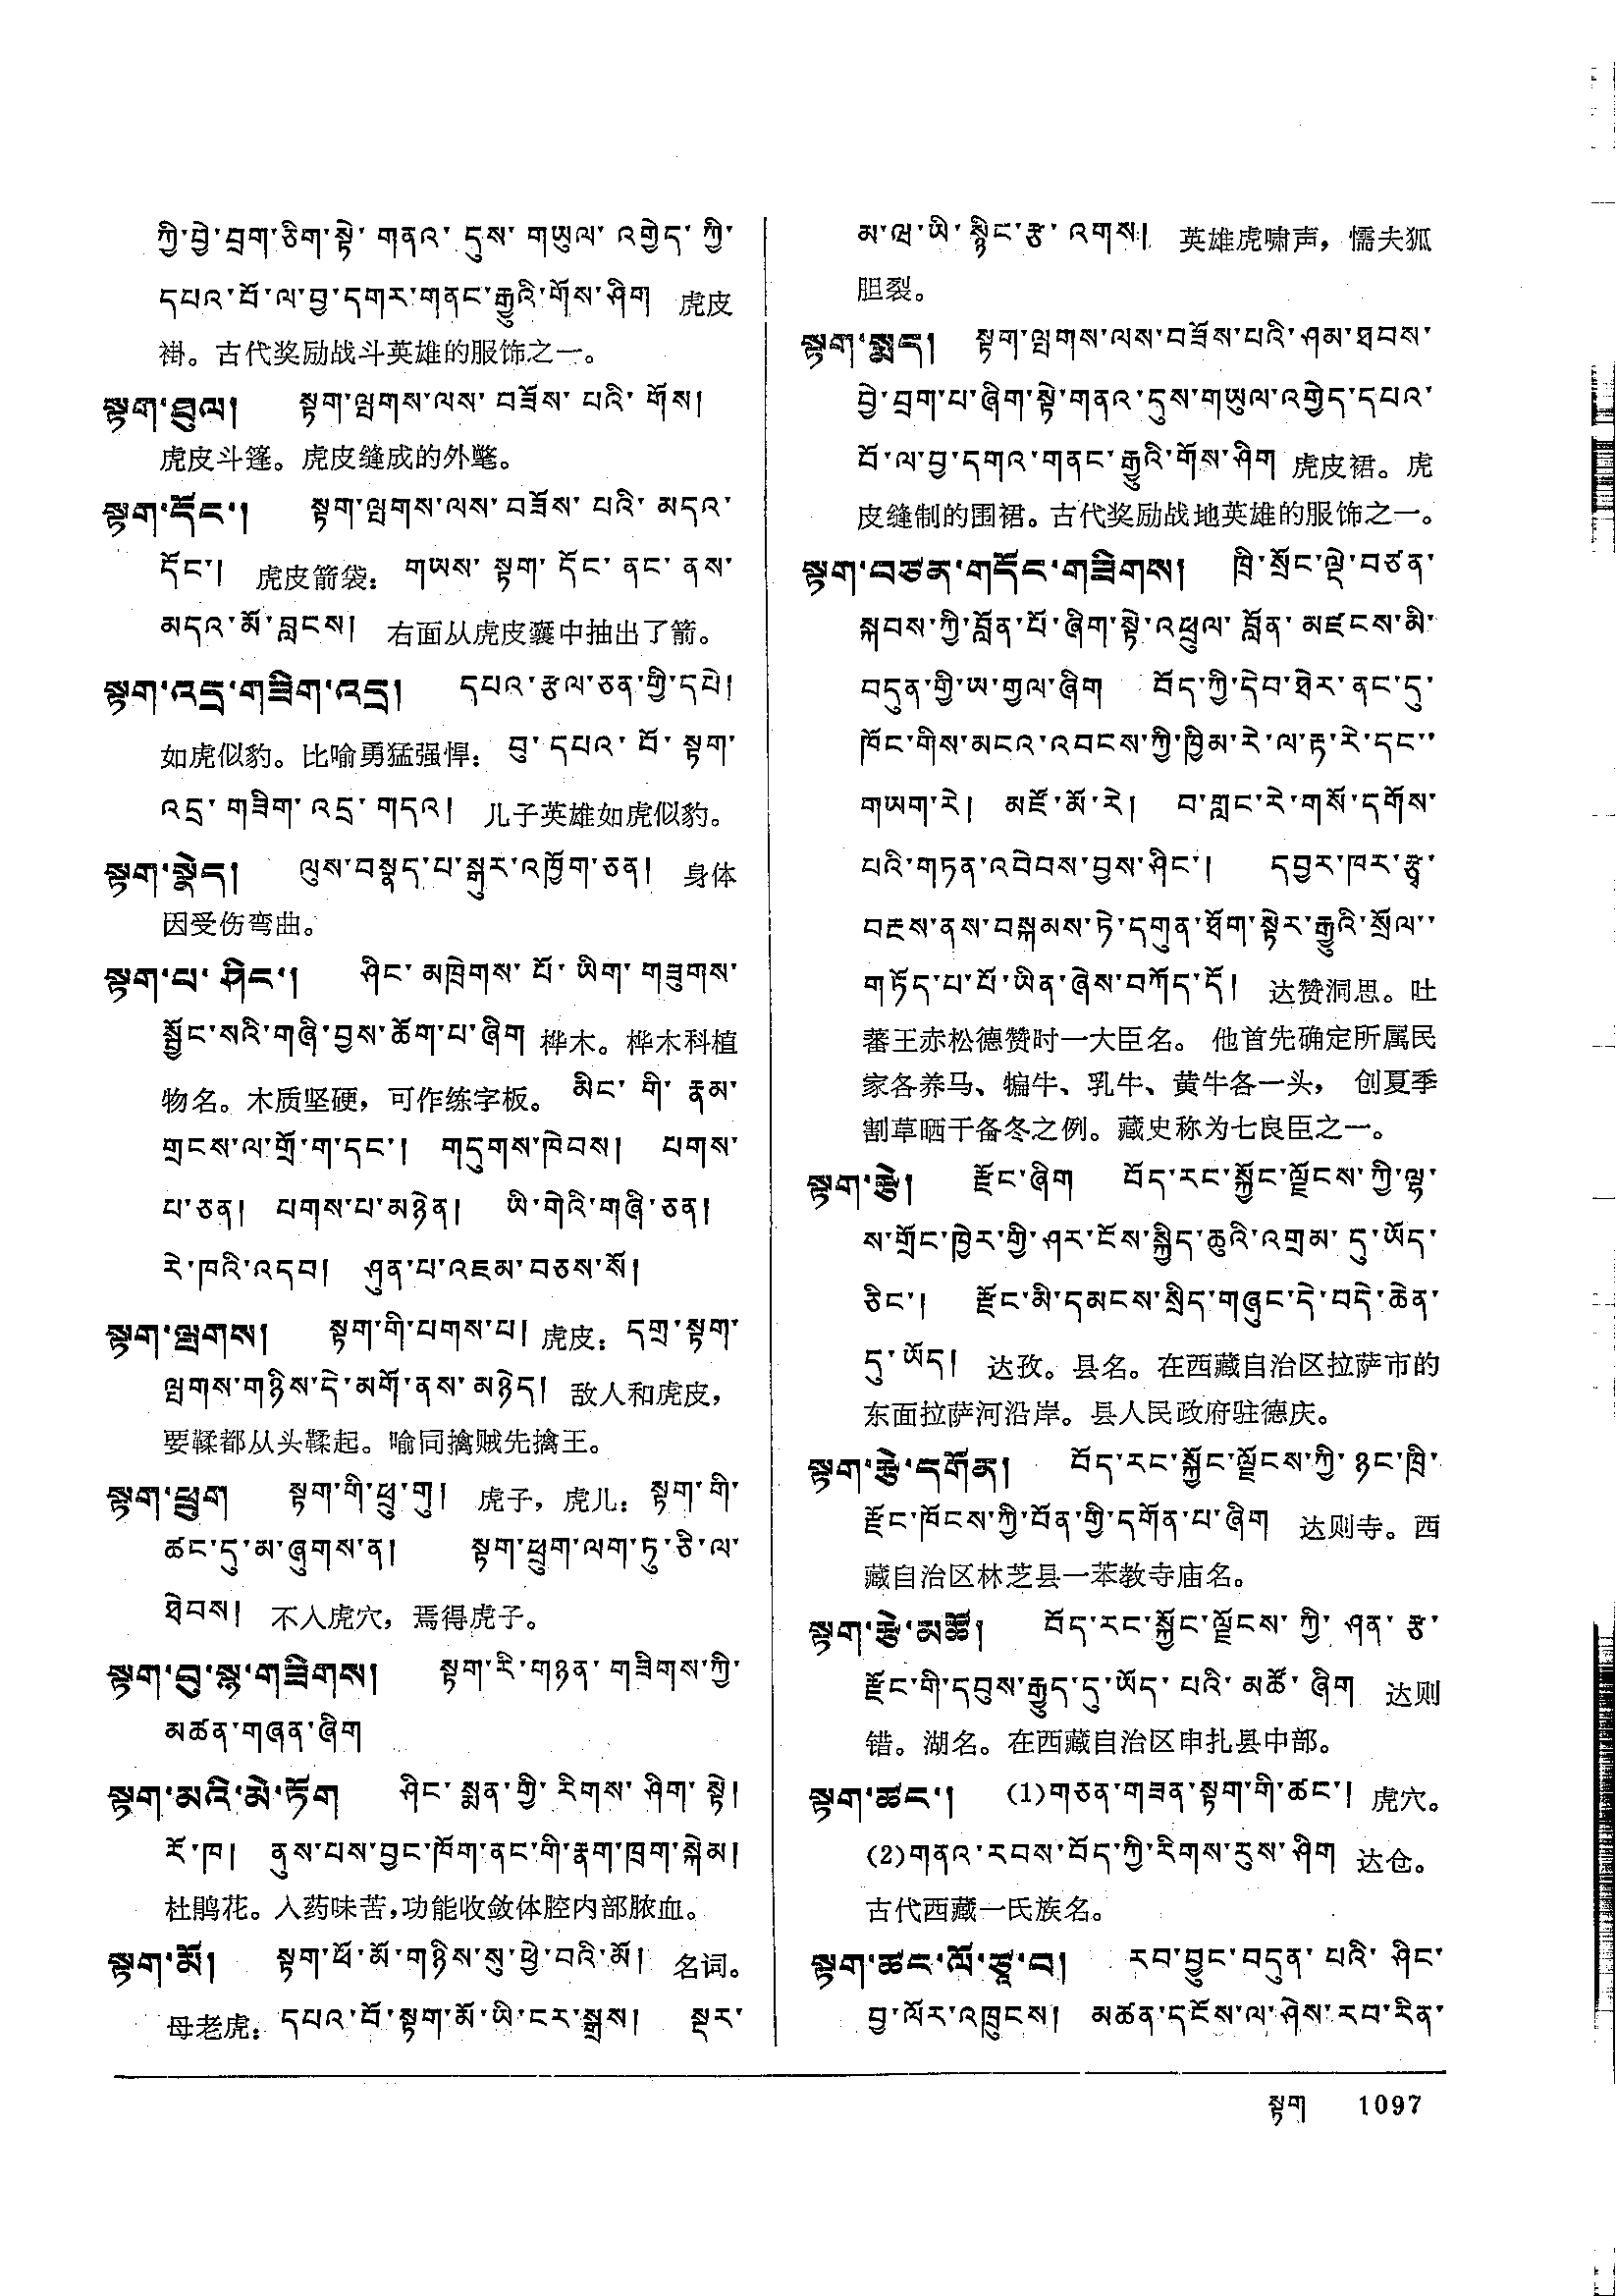 ཀྱི་བྱེ་བྲག་ཅིག་སྟེ་ གནའ་ དུས་ གཡུལ་ འགྱེད་ ཀྱི་
དཔའ་བོ་ལ་བྱ་དགར་གནང་རྒྱུའི་གོས་ཤིག 虎皮
褂。古代奖励战斗英雄的服饰之一。
སྟག་ཐུལ། སྟག་ལྤགས་ལས་ བཟོས་ པའི་ གོས།
虎皮斗篷。虎皮缝成的外氅。
སྟག་དོང་། སྟག་ལྤགས་ལས་ བཟོས་ པའི་ མདའ་
དོང་། 虎皮箭袋： གཡས་ སྟག་ དོང་ ནང་ ནས་
མདའ་མོ་བླངས། 右面从虎皮囊中抽出了箭。
སྟག་འདྲ་གཟིག་འདྲ། དཔའ་རྩལ་ཅན་གྱི་དཔེ།
如虎似豹。比喻勇猛强悍： བུ་ དཔའ་ བོ་ སྟག་
འདྲ་ གཟིག་ འདྲ་ གདའ། 儿子英雄如虎似豹。
སྟག་སྣེད། ལུས་བསྣད་པ་སྒུར་འཁྱོག་ཅན། 身体
因受伤弯曲。
སྟག་པ་ ཤིང་། ཤིང་ མཁྲེགས་ པོ་ ཡིག་ གཟུགས་
སྦྱོང་སའི་གཞི་བྱས་ཆོག་པ་ཞིག 桦木。桦木科植
物名。木质坚硬，可作练字板。 མིང་ གི་ རྣམ་
གྲངས་ལ་གྲོ་ག་དང་། གདུགས་ཁེབས། པགས་
པ་ཅན། པགས་པ་མཉེན། ཡི་གེའི་གཞི་ཅན།
རེ་ཁའི་འདབ། ཤུན་པ་འཇམ་བཅས་སོ།
སྟག་ལྤགས། སྟག་གི་པགས་པ། 虎皮： དགྲ་སྟག་
ལྤགས་གཉིས་དེ་མགོ་ནས་མཉེད། 敌人和虎皮，
要鞣都从头鞣起。喻同擒贼先擒王。
སྟག་ཕྲུག སྟག་གི་ཕྲུ་གུ། 虎子，虎儿： སྟག་གི་
ཚང་དུ་མ་ཞུགས་ན། སྟག་ཕྲུག་ལག་ཏུ་ཅི་ལ་
ཐེབས། 不入虎穴，焉得虎子。
སྟག་བུ་སྙ་གཟིགས། སྟག་རི་གཉན་ གཟིགས་ཀྱི་
མཚན་གཞན་ཞིག
སྟག་མའི་མེ་ཏོག ཤིང་ སྨན་གྱི་ རིགས་ ཤིག་ སྟེ།
རོ་ཁ། ནུས་པས་བྱང་ཁོག་ནང་གི་རྣག་ཁྲག་སྐེམ།
杜鹃花。入药味苦，功能收敛体腔内部脓血。
སྟག་མོ། སྟག་ཕོ་མོ་གཉིས་སུ་ཕྱེ་བའི་མོ། 名词。
母老虎： དཔའ་བོ་སྟག་མོ་ཡི་ངར་སྒྲས། སྡར་
མ་ཝ་ཡི་སྙིང་རྩ་འགས། 英雄虎啸声，懦夫狐
胆裂。
སྟག་སྨད། སྟག་ལྤགས་ལས་བཟོས་པའི་ཤམ་ཐབས་
བྱེ་བྲག་པ་ཞིག་སྟེ་གནའ་དུས་གཡུལ་འགྱེད་དཔའ་
བོ་ལ་བྱ་དགའ་གནང་རྒྱུའི་གོས་ཤིག 虎皮裙。虎
皮缝制的围裙。古代奖励战地英雄的服饰之一。
སྟག་བཙན་གདོང་གཟིགས། ཁྲི་སྲོང་ལྡེ་བཙན་
སྐབས་ཀྱི་བློན་པོ་ཞིག་སྟེ་འཕྲུལ་ བློན་ མཛངས་མི་
བདུན་གྱི་ཨ་གྲལ་ཞིག བོད་ཀྱི་དེབ་ཐེར་ནང་དུ་
ཁོང་གིས་མངའ་འབངས་ཀྱི་ཁྱིམ་རེ་ལ་རྟ་རེ་དང་་
གཡག་རེ། མཛོ་མོ་རེ། བ་གླང་རེ་གསོ་དགོས་
པའི་གཏན་འབེབས་བྱས་ཤིང་། དབྱར་ཁར་རྩྭ་
བརྔས་ནས་བསྐམས་ཏེ་དགུན་ཐོག་སྟེར་རྒྱུའི་སྲོལ་་
གཏོད་པ་པོ་ཡིན་ཞེས་བཀོད་དོ། 达赞洞思。吐
蕃王赤松德赞时一大臣名。 他首先确定所属民
家各养马、犏牛、乳牛、黄牛各一头， 创夏季
割草晒干备冬之例。藏史称为七良臣之一。
སྟག་རྩེ། རྫོང་ཞིག བོད་རང་སྐྱོང་ལྗོངས་ཀྱི་ལྷ་
ས་གྲོང་ཁྱེར་གྱི་ཤར་ངོས་སྐྱིད་ཆུའི་འགྲམ་ དུ་ཡོད་
ཅིང་། རྫོང་མི་དམངས་སྲིད་གཞུང་དེ་བདེ་ཆེན་
དུ་ཡོད། 达孜。县名。在西藏自治区拉萨市的
东面拉萨河沿岸。县人民政府驻德庆。
སྟག་རྩེ་དགོན། བོད་རང་སྐྱོང་ལྗོངས་ཀྱི་ཉང་ཁྲི་
རྫོང་ཁོངས་ཀྱི་བོན་གྱི་དགོན་པ་ཞིག 达则寺。西
藏自治区林芝县一苯教寺庙名。
སྟག་རྩེ་མཚོ། བོད་རང་སྐྱོང་ལྗོངས་ ཀྱི་ ཤན་ རྩ་
རྫོང་གི་དབུས་རྒྱུད་དུ་ཡོད་ པའི་ མཚོ་ ཞིག 达则
错。湖名。在西藏自治区申扎县中部。
སྟག་ཚང་། (1)གཅན་གཟན་སྟག་གི་ཚང་། 虎穴。
(2)གནའ་རབས་བོད་ཀྱི་རིགས་རུས་ཤིག 达仓。
古代西藏一氏族名。
སྟག་ཚང་ལོ་ཙཱ་བ། རབ་བྱུང་བདུན་ པའི་ ཤིང་
བྱ་ལོར་འཁྲུངས། མཚན་དངོས་ལ་ཤེས་རབ་རིན་
སྟག 1097